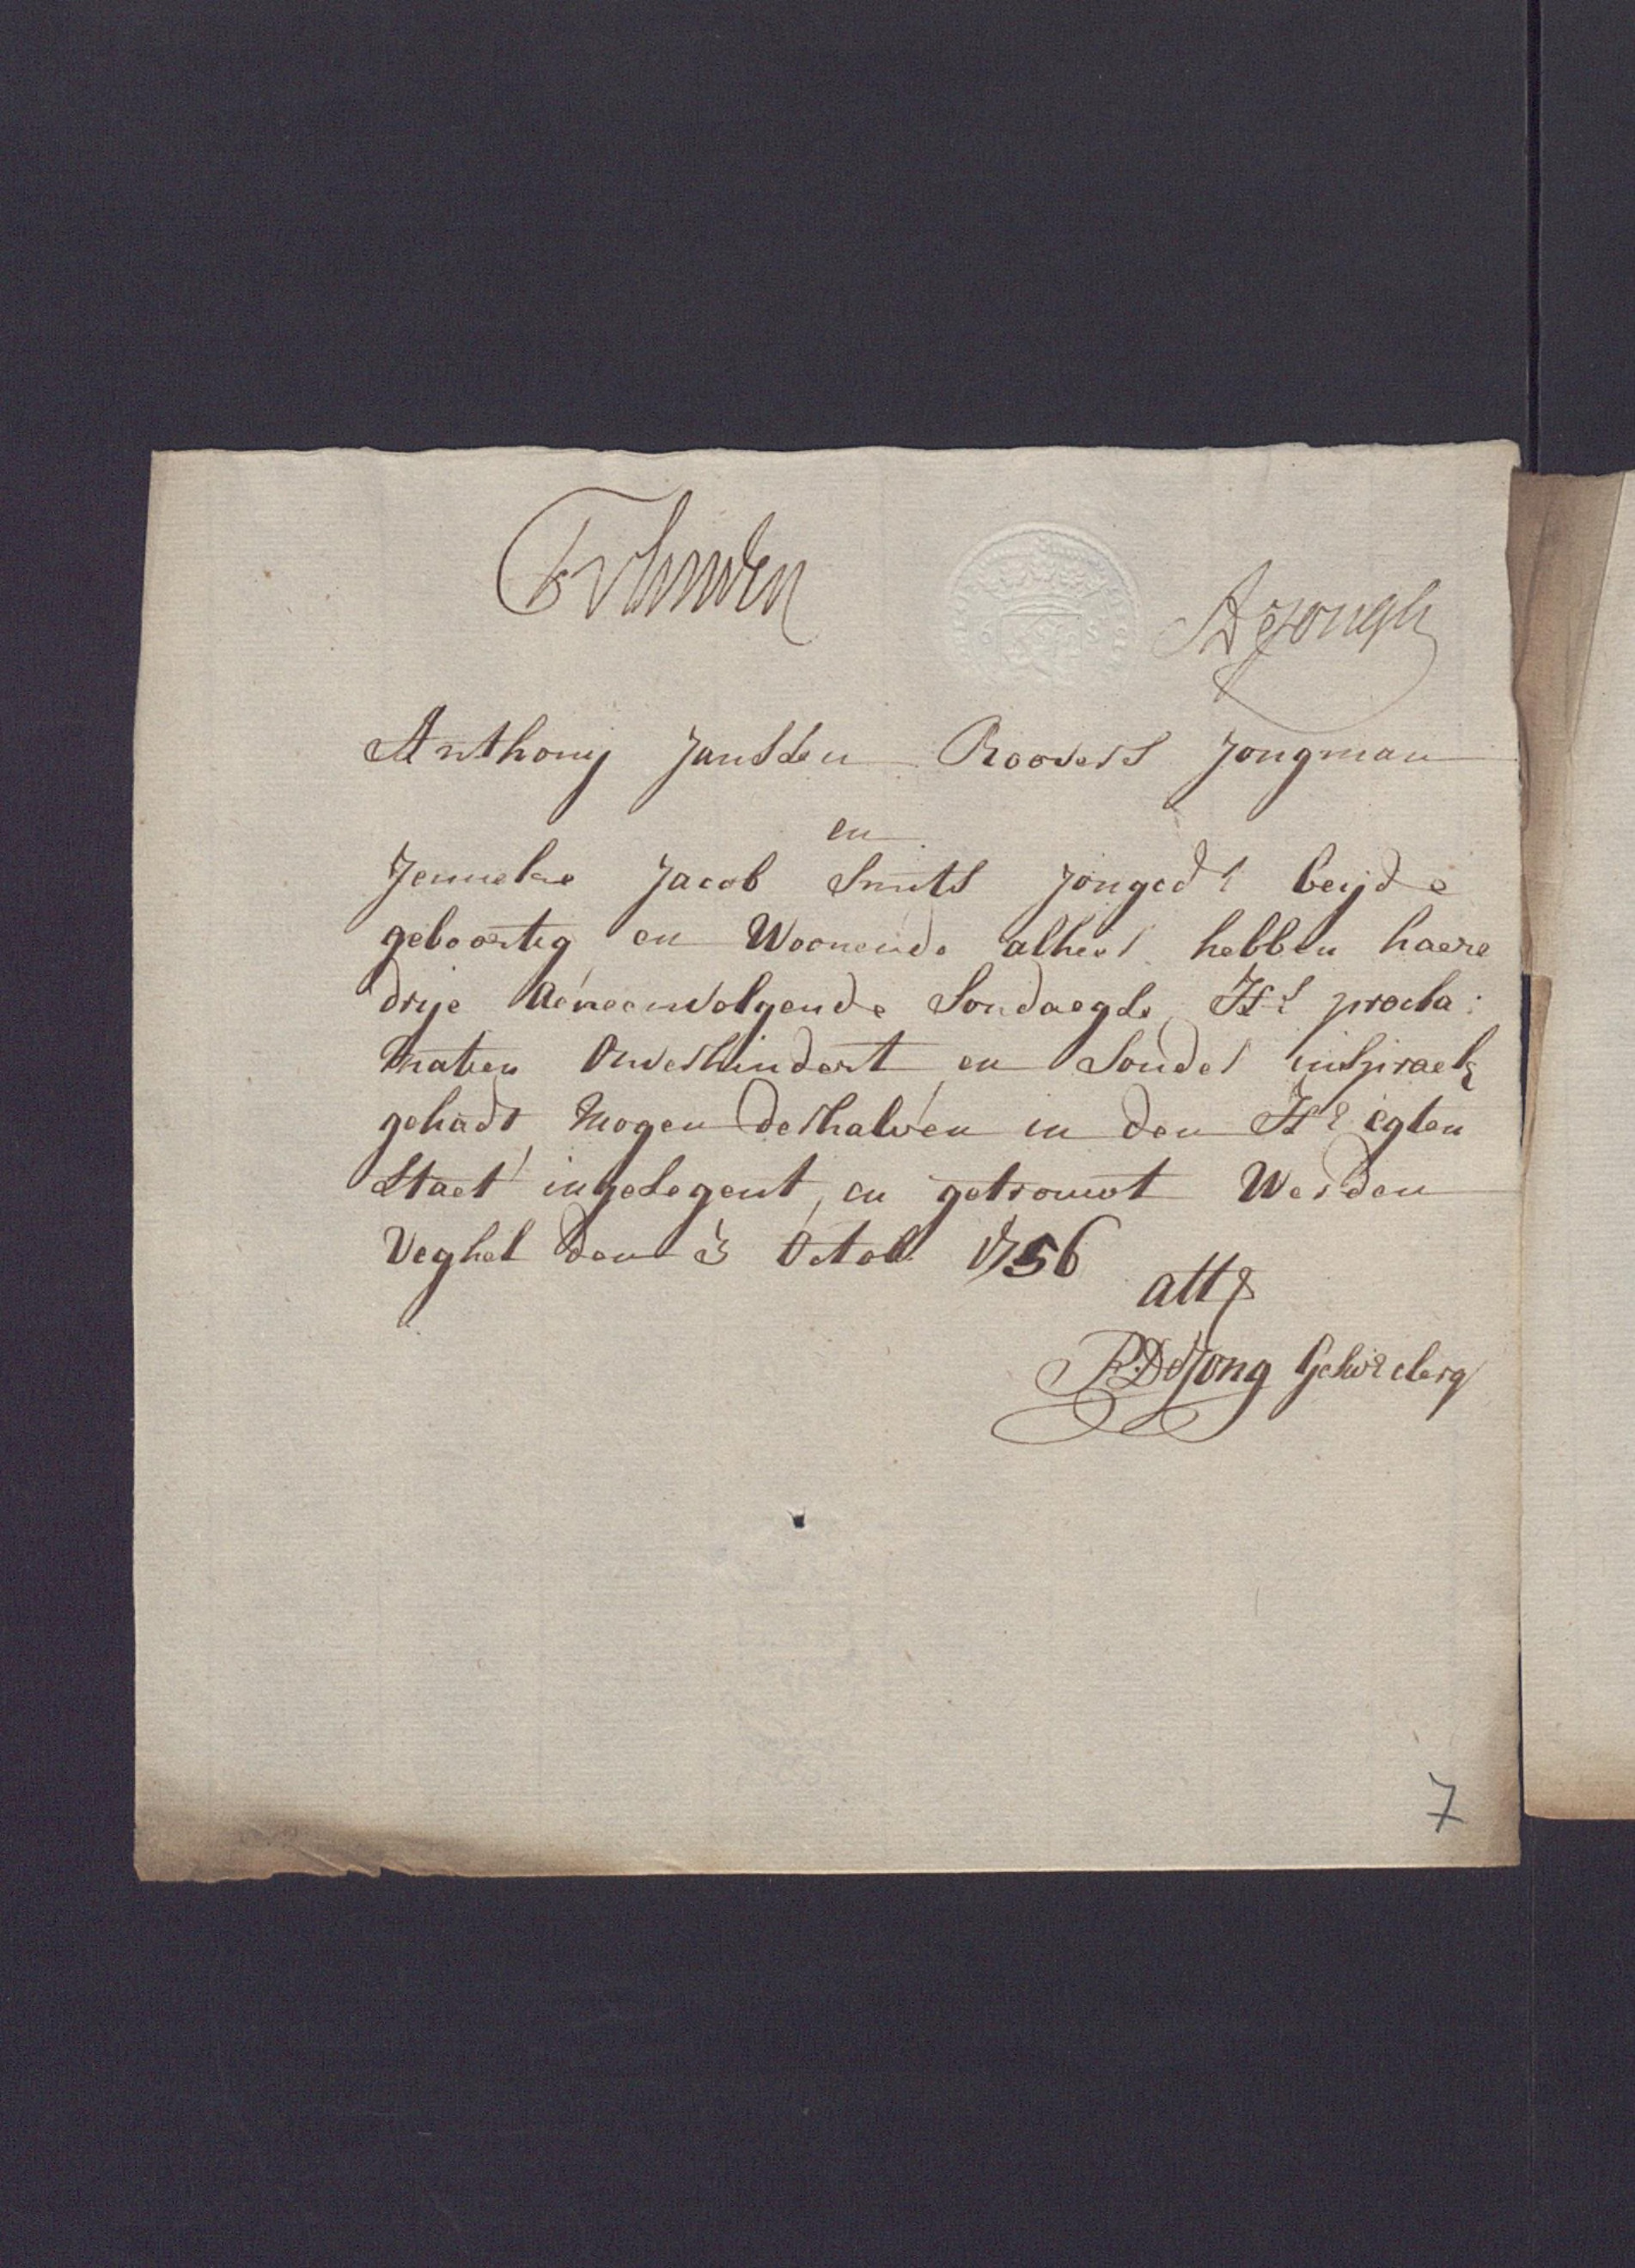 Anthony Janssen Roovers Jongman
en
Jenneke Jacob Smits Jongedr beijde
geboortig en Woonende alhier hebben haere
drije Aeneenvolgende Sondaegse Hs procla:
matien Onverhindert en Sonder inspraek
gehadt, Mogen derhalven in den Hr Egten
Staet ingesegent, en getrouwt Werden
Veghel den 3 Octob 1756
attr
P. De Jong
7